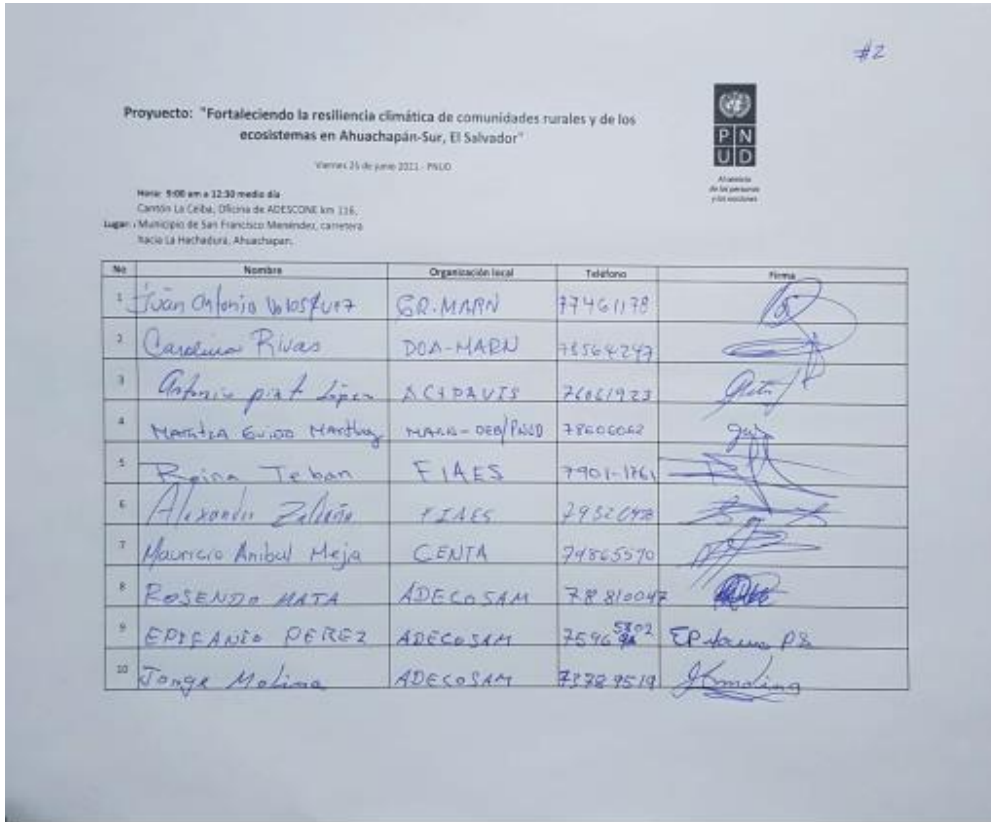 #2
Proyucto: "Fortaleciendo la resiliencia climática de comunidades rurales y de los
ecosistemas en Ahuachapán-Sur, El Salvador"
Viernes 25 de junio 2021 - PNUD
PN
UD
Al servicio
de las personas
y las naciones
Hora: 9:00 am a 12:30 medio día
Cantón La Ceiba, Oficina de ADESCONE km 116,
Lugar: Municipio de San Francisco Menéndez, carretera
hacia La Hachadura, Ahuachapan.
No Nombre Organización local Teléfono Firma
1 Juan Antonio GR-MARN 77461178
2 Carolina Rivas DOA-MARN 78564247
3 Antonio López ACIPAVIS 76061923
4 Guido MARN-DEB/PNUD 78606062
5 Reina Teban FIAES 7901-1761
6 Alexander FIAES
7 Mauricio Anibal Mejia CENTA 79865570
8 ROSENDO MATA ADECOSAM 78810047
9 EPIFANIO PEREZ ADECOSAM 7596 5802
10 Jorge Molina ADECOSAM 73789519